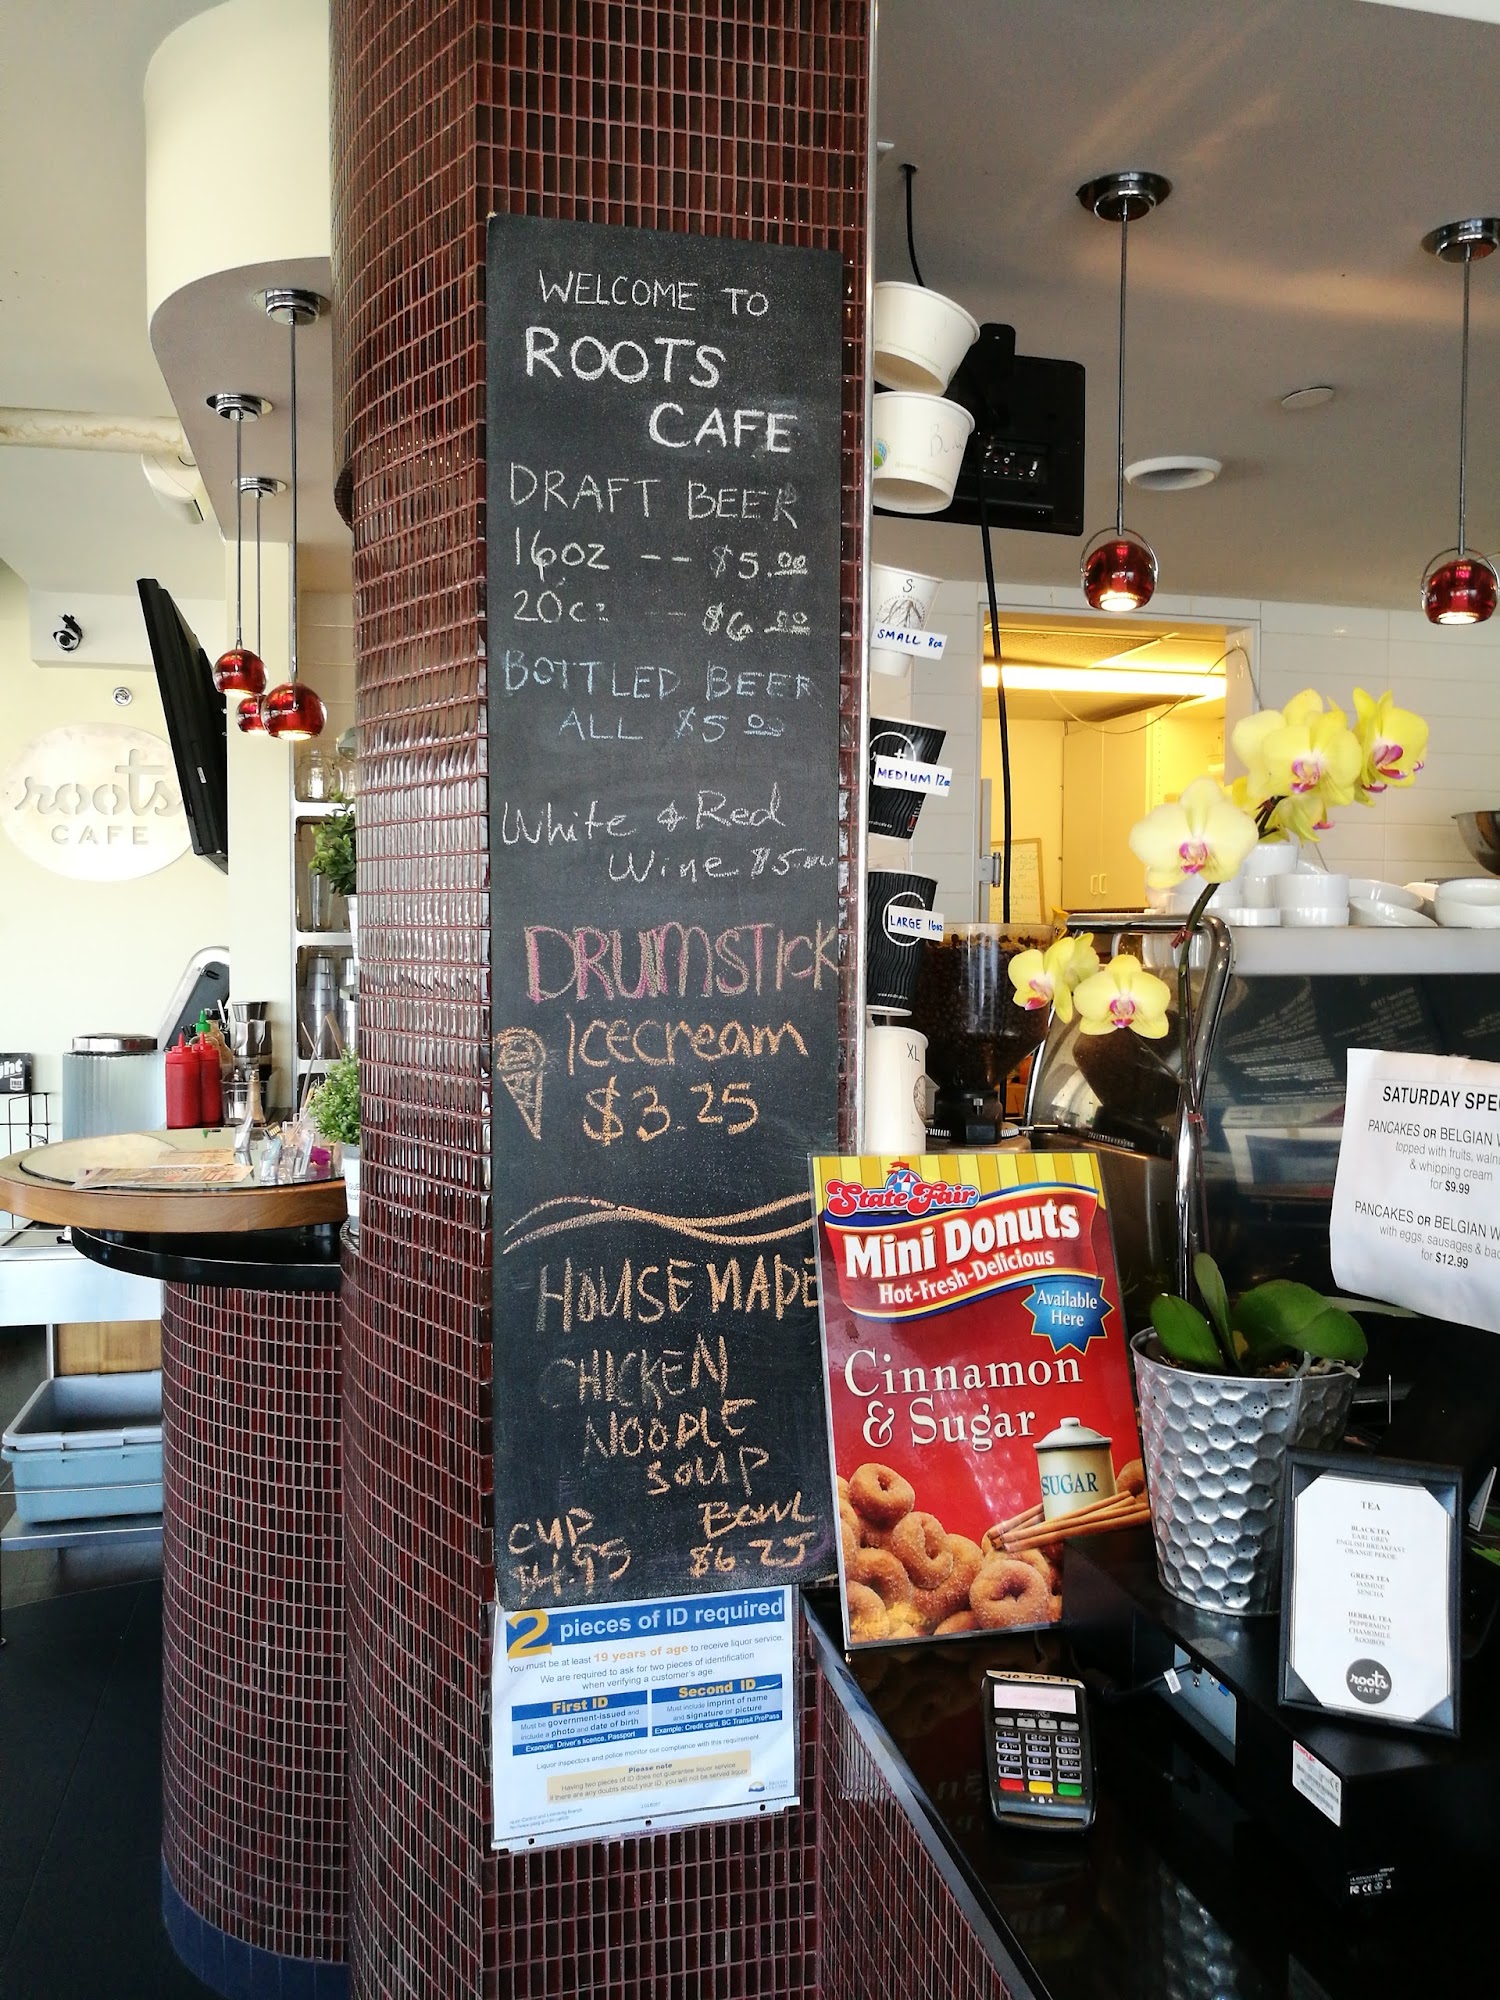 WELCOME TO
ROOTS
CAFE
DRAFT BEER
16oz -- $5.00
20oz -- $6.00
BOTTLED BEER
ALL $5 00
White & Red
Wine $5.00
DRUMSTICK
Icecream
$3.25
HOUSEMADE
CHICKEN
NOODLE
SOUP
CUP Bowl
$4.95 $6.25
2 pieces of ID required
You must be at least 19 years of age to receive liquor service.
We are required to ask for two pieces of identification
when verifying a customer's age.
First ID
Must be government-issued and
include a photo and date of birth
Example: Driver's licence, Passport
Second ID
Must include imprint of name
and signature or picture
Example: Credit card, BC Transit ProPass
Liquor inspectors and police monitor our compliance with this requirement.
Please note
Having two pieces of ID does not guarantee liquor service
if there are any doubts about your ID, you will not be served liquor
roots
CAFE
S.
SMALL 8oz
MEDIUM 12oz
LARGE 16oz
XL
State Fair
Mini Donuts
Hot-Fresh-Delicious
Available
Here
Cinnamon
& Sugar
SUGAR
SATURDAY SPE
PANCAKES OR BELGIAN W
topped with fruits, waln
& whipping cream
for $9.99
PANCAKES OR BELGIAN W
with eggs, sausages & bac
for $12.99
TEA
BLACK TEA
EARL GREY
ENGLISH BREAKFAST
ORANGE PEKOE
GREEN TEA
JASMINE
SENCHA
HERBAL TEA
PEPPERMINT
CHAMOMILE
ROOIBOS
roots
CAFE
NO TAP